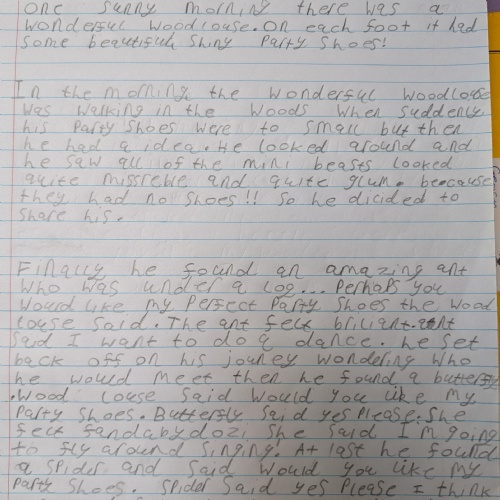 one sunny morning there was a
wonderful woodlouse. On each foot it had
some beautifull shiny party shoes!
In the morning the wonderful woodlouse
was walking in the woods when suddenly
his party shoes were to small but then
he had a idea. He looked around and
he saw all of the mini beasts looked
quite missreble and quite glum. beocause
they had no shoes!! So he dicided to
share his.
Finally he found an amazing ant
who was under a log... Perhaps you
would like my perfect party shoes the wood
louse said. The ant felt briliant.
said I want to do a dance. he set
back off on his jouney wondering who
he would meet then he found a butterfly
.wood louse said would you like my
party shoes. Butterfly said yes please. She
felt fandabydozi she said I'm going
to fly around singing. At last he found
a spider and said would you like my
party shoes. Spider said yes please I think